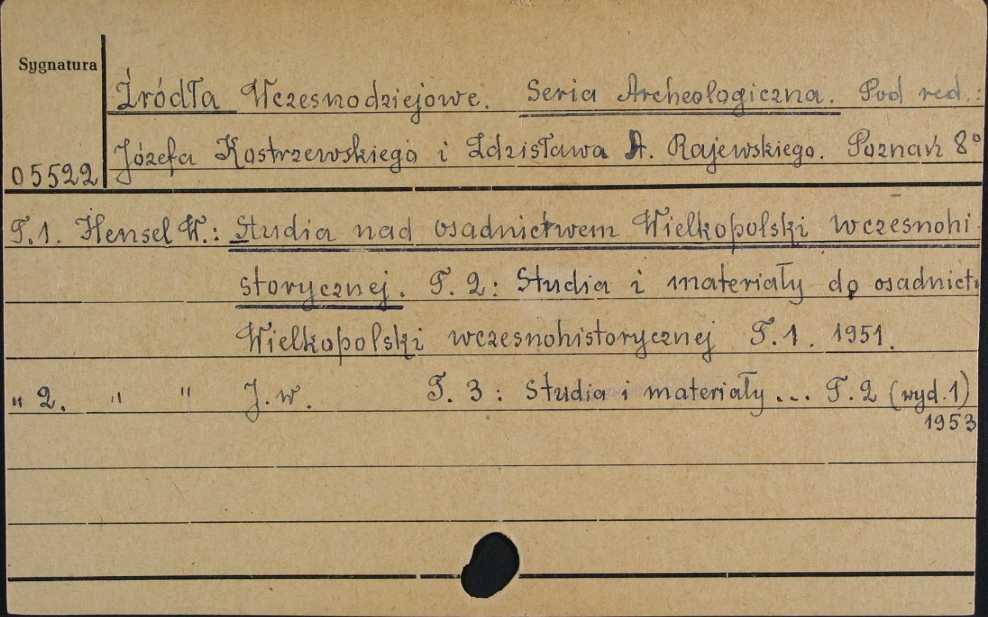 Sygnatura
Źródła Wczesnodziejowe. Seria Archeologiczna. Pod red.:
Józefa Kostrzewskiego i Zdzisława A. Rajewskiego. Poznań 8°
05522
T.1. Hensel W.: Studia nad osadnictwem Wielkopolski wczesnohi
storycznej. T. 2: Studia i materiały do osadnict.
Wielkopolski wczesnohistorycznej T.1. 1951.
" 2. " " J.w. T. 3: Studia i materiały... T.2 (wyd.1)
1953